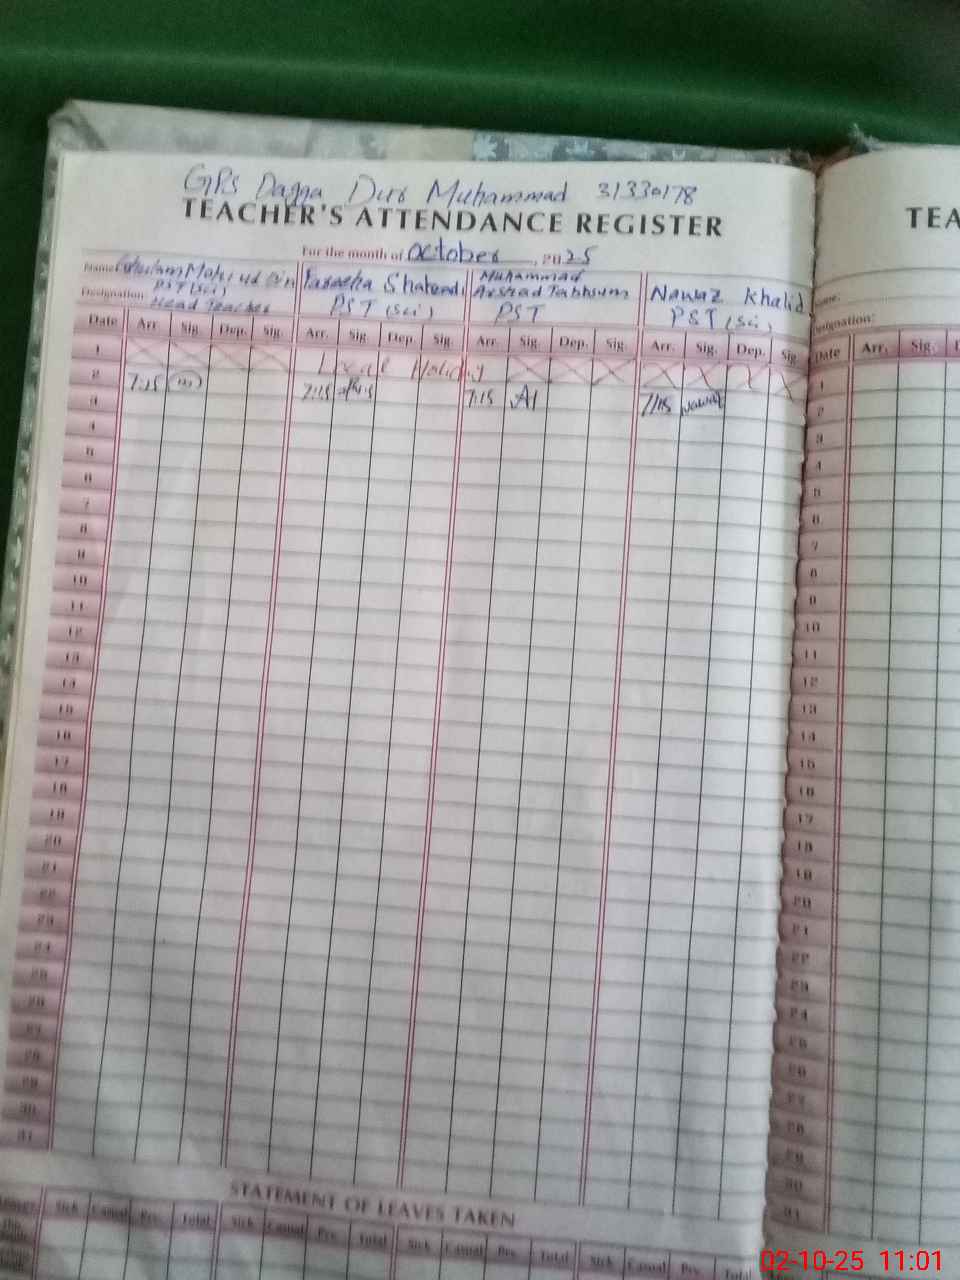 GPS Dagga Muhammad 31330178
TEACHER'S ATTENDANCE REGISTER
TEA
For the month of October, 2025
Name
Muhammad
PST (Sci)
Arshad Tabbsum
Nawaz Khalid
Designation:
Head Teacher
PST (Sci)
PST
PST (Sci)
Name:
Designation:
Date Arr. Sig. Dep. Sig. Arr. Sig. Dep. Sig. Arr. Sig. Dep. Sig. Arr. Sig. Dep. Sig.
Date Arr. Sig. D
1 Local Holiday
2 7:15 7:15 7:15 7:15 Nawaz
3
4
5
6
7
8
9
10
11
12
13
14
15
16
17
18
19
20
21
22
23
24
25
26
27
28
29
30
31
1
2
3
4
5
6
7
8
9
10
11
12
13
14
15
16
17
18
19
20
21
22
23
24
25
26
27
28
29
30
31
STATEMENT OF LEAVES TAKEN
Sick Casual Prv. Total Sick Casual Prv. Total Sick Casual Prv. Total Sick Casual Prv. Total
02-10-25 11:01